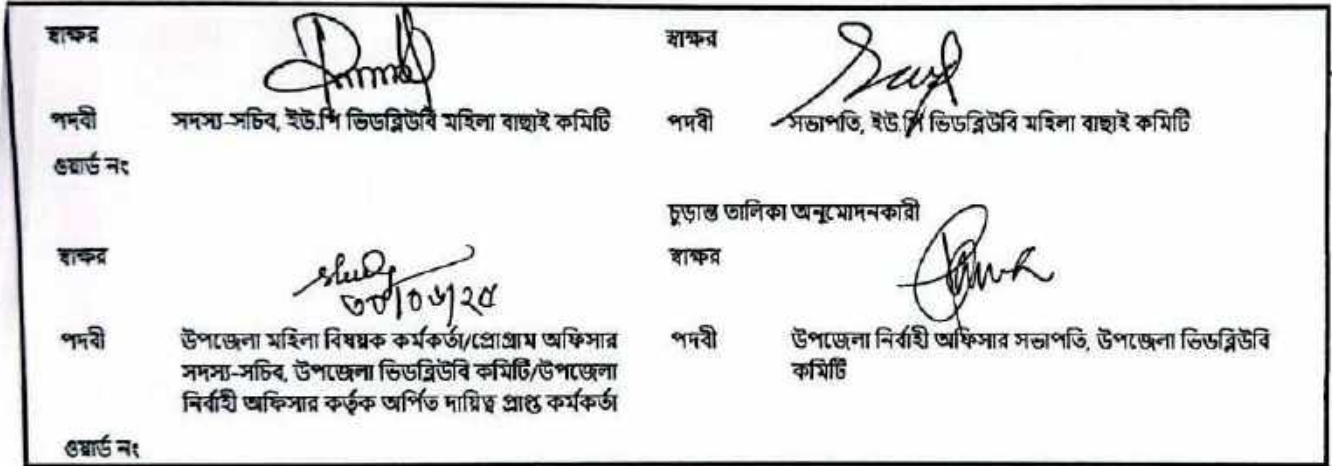 স্বাক্ষর
স্বাক্ষর
পদবী সদস্য-সচিব, ইউ.পি ভিডব্লিউবি মহিলা বাছাই কমিটি
পদবী সভাপতি, ইউ.পি ভিডব্লিউবি মহিলা বাছাই কমিটি
ওয়ার্ড নং
চুড়ান্ত তালিকা অনুমোদনকারী
স্বাক্ষর
৩০/০৬/২৫
স্বাক্ষর
পদবী উপজেলা মহিলা বিষয়ক কর্মকর্তা/প্রোগ্রাম অফিসার
সদস্য-সচিব, উপজেলা ভিডব্লিউবি কমিটি/উপজেলা
নির্বাহী অফিসার কর্তৃক অর্পিত দায়িত্ব প্রাপ্ত কর্মকর্তা
পদবী উপজেলা নির্বাহী অফিসার সভাপতি, উপজেলা ভিডব্লিউবি
কমিটি
ওয়ার্ড নং